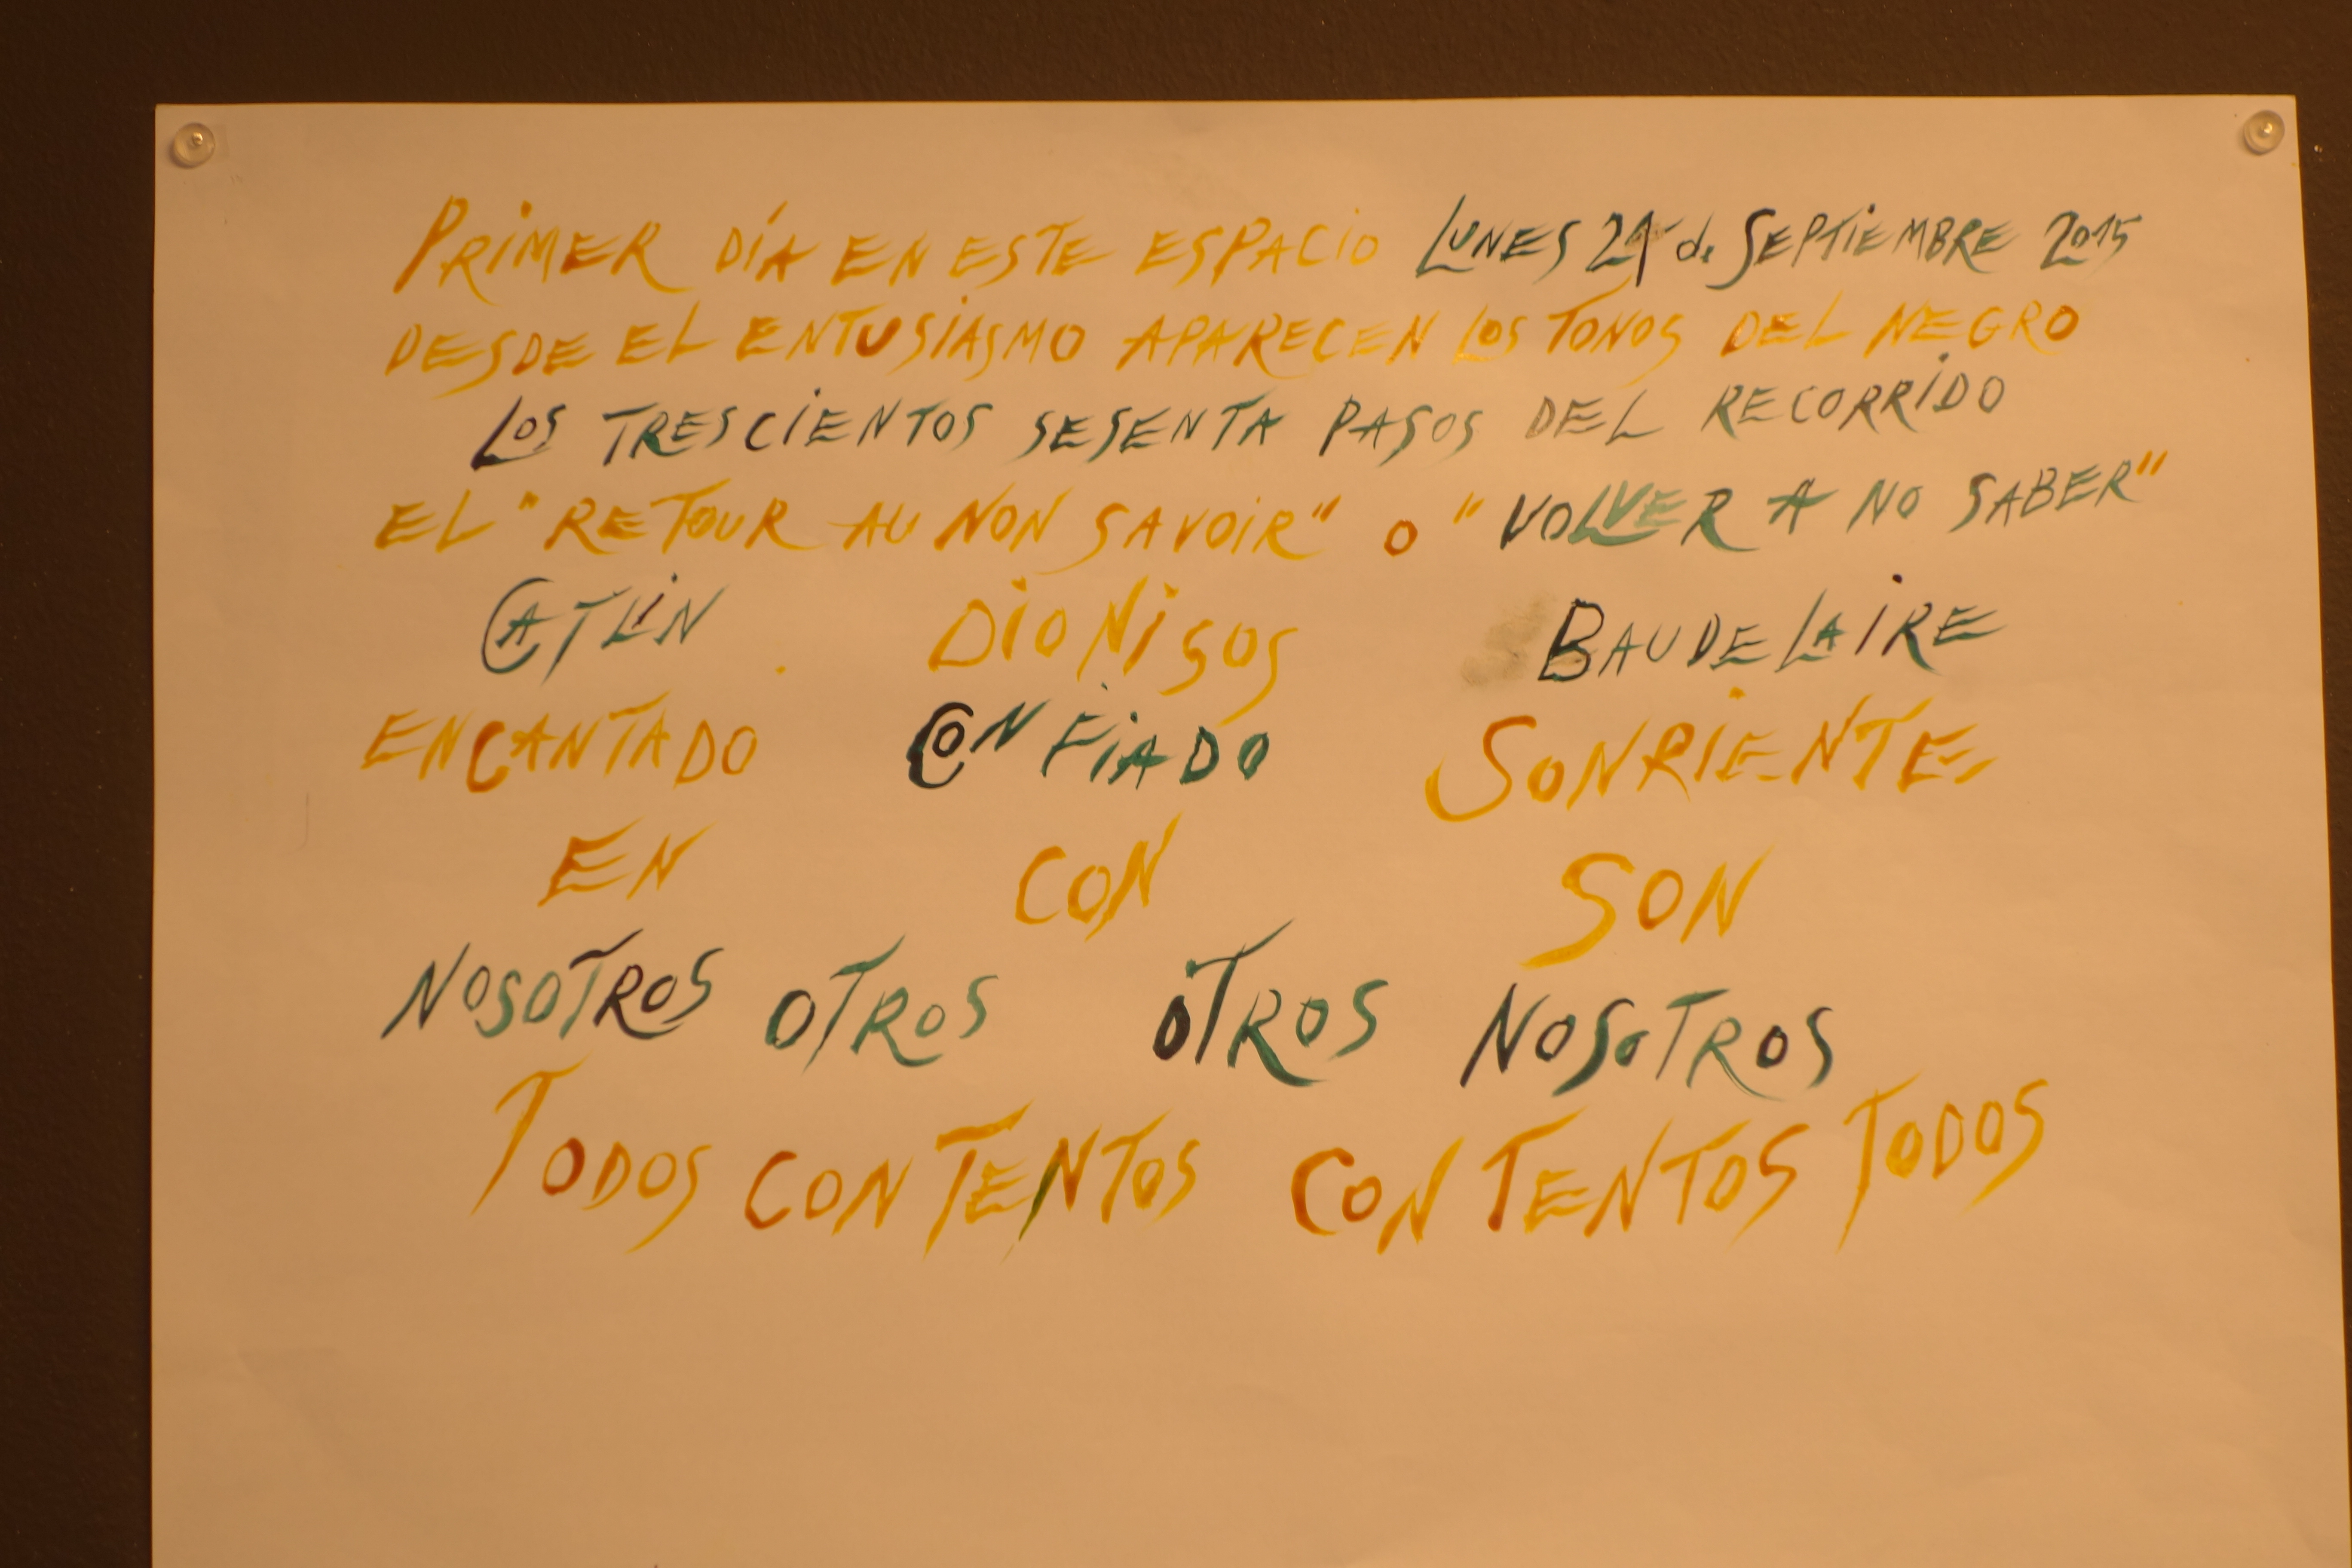 PRIMER DÍA EN ESTE ESPACIO LUNES 21 de SEPTIEMBRE 2015
DESDE EL ENTUSIASMO APARECEN LOS TONOS DEL NEGRO
LOS TRESCIENTOS SESENTA PASOS DEL RECORRIDO
EL "RETOUR AU NON SAVOIR" O "VOLVER A NO SABER"
CATLIN DIONISOS BAUDELAIRE
ENCANTADO CONFIADO SONRIENTE
EN CON SON
NOSOTROS OTROS OTROS NOSOTROS
TODOS CONTENTOS CONTENTOS TODOS